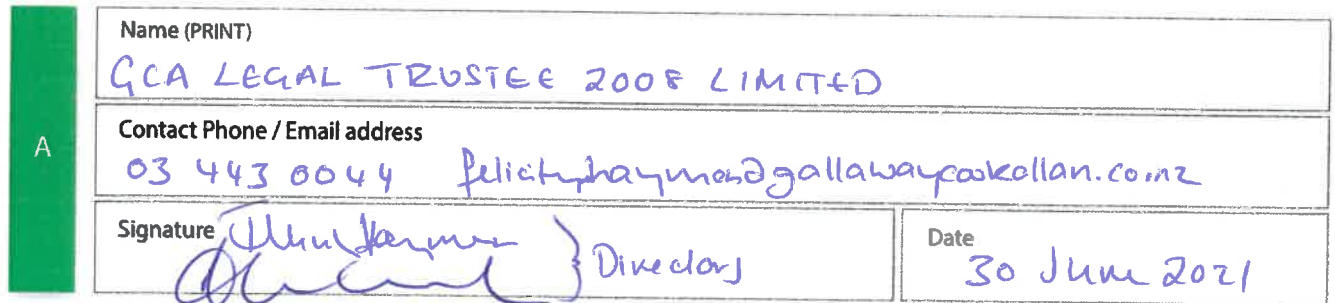 A
Name (PRINT)
GCA LEGAL TRUSTEE 2008 LIMITED
Contact Phone / Email address
03 443 0044 felicityhayman@gallawaycookallan.co.nz
Signature
Directors
Date
30 June 2021